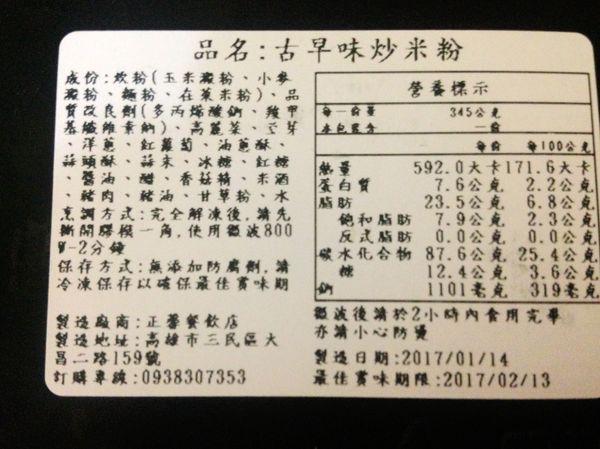 品名:古早味炒米粉
成份:炊粉(玉米澱粉、小麥
澱粉、麵粉、在萊米粉)、品
質改良劑(多丙烯酸鈉、羧甲
基纖維素鈉)、高麗菜、豆芽
、洋蔥、紅蘿蔔、油蔥酥、
蒜頭酥、蒜末、冰糖、紅糖
、醬油、醋、香菇精、米酒
、豬肉、豬油、甘草粉、水
烹調方式:完全解凍後,請先
撕開膠膜一角,使用微波800
W-2分鐘
保存方式:無添加防腐劑,請
冷凍保存以確保最佳賞味期
製造廠商:正馨餐飲店
製造地址:高雄市三民區大
昌二路159號
訂購專線:0938307353
營養標示
每一份量 345公克
本包裝含 一份
每份 每100公克
熱量 592.0大卡 171.6大卡
蛋白質 7.6公克 2.2公克
脂肪 23.5公克 6.8公克
飽和脂肪 7.9公克 2.3公克
反式脂肪 0.0公克 0.0公克
碳水化合物 87.6公克 25.4公克
糖 12.4公克 3.6公克
鈉 1101毫克 319毫克
微波後請於2小時內食用完畢
亦請小心防燙
製造日期:2017/01/14
最佳賞味期限:2017/02/13